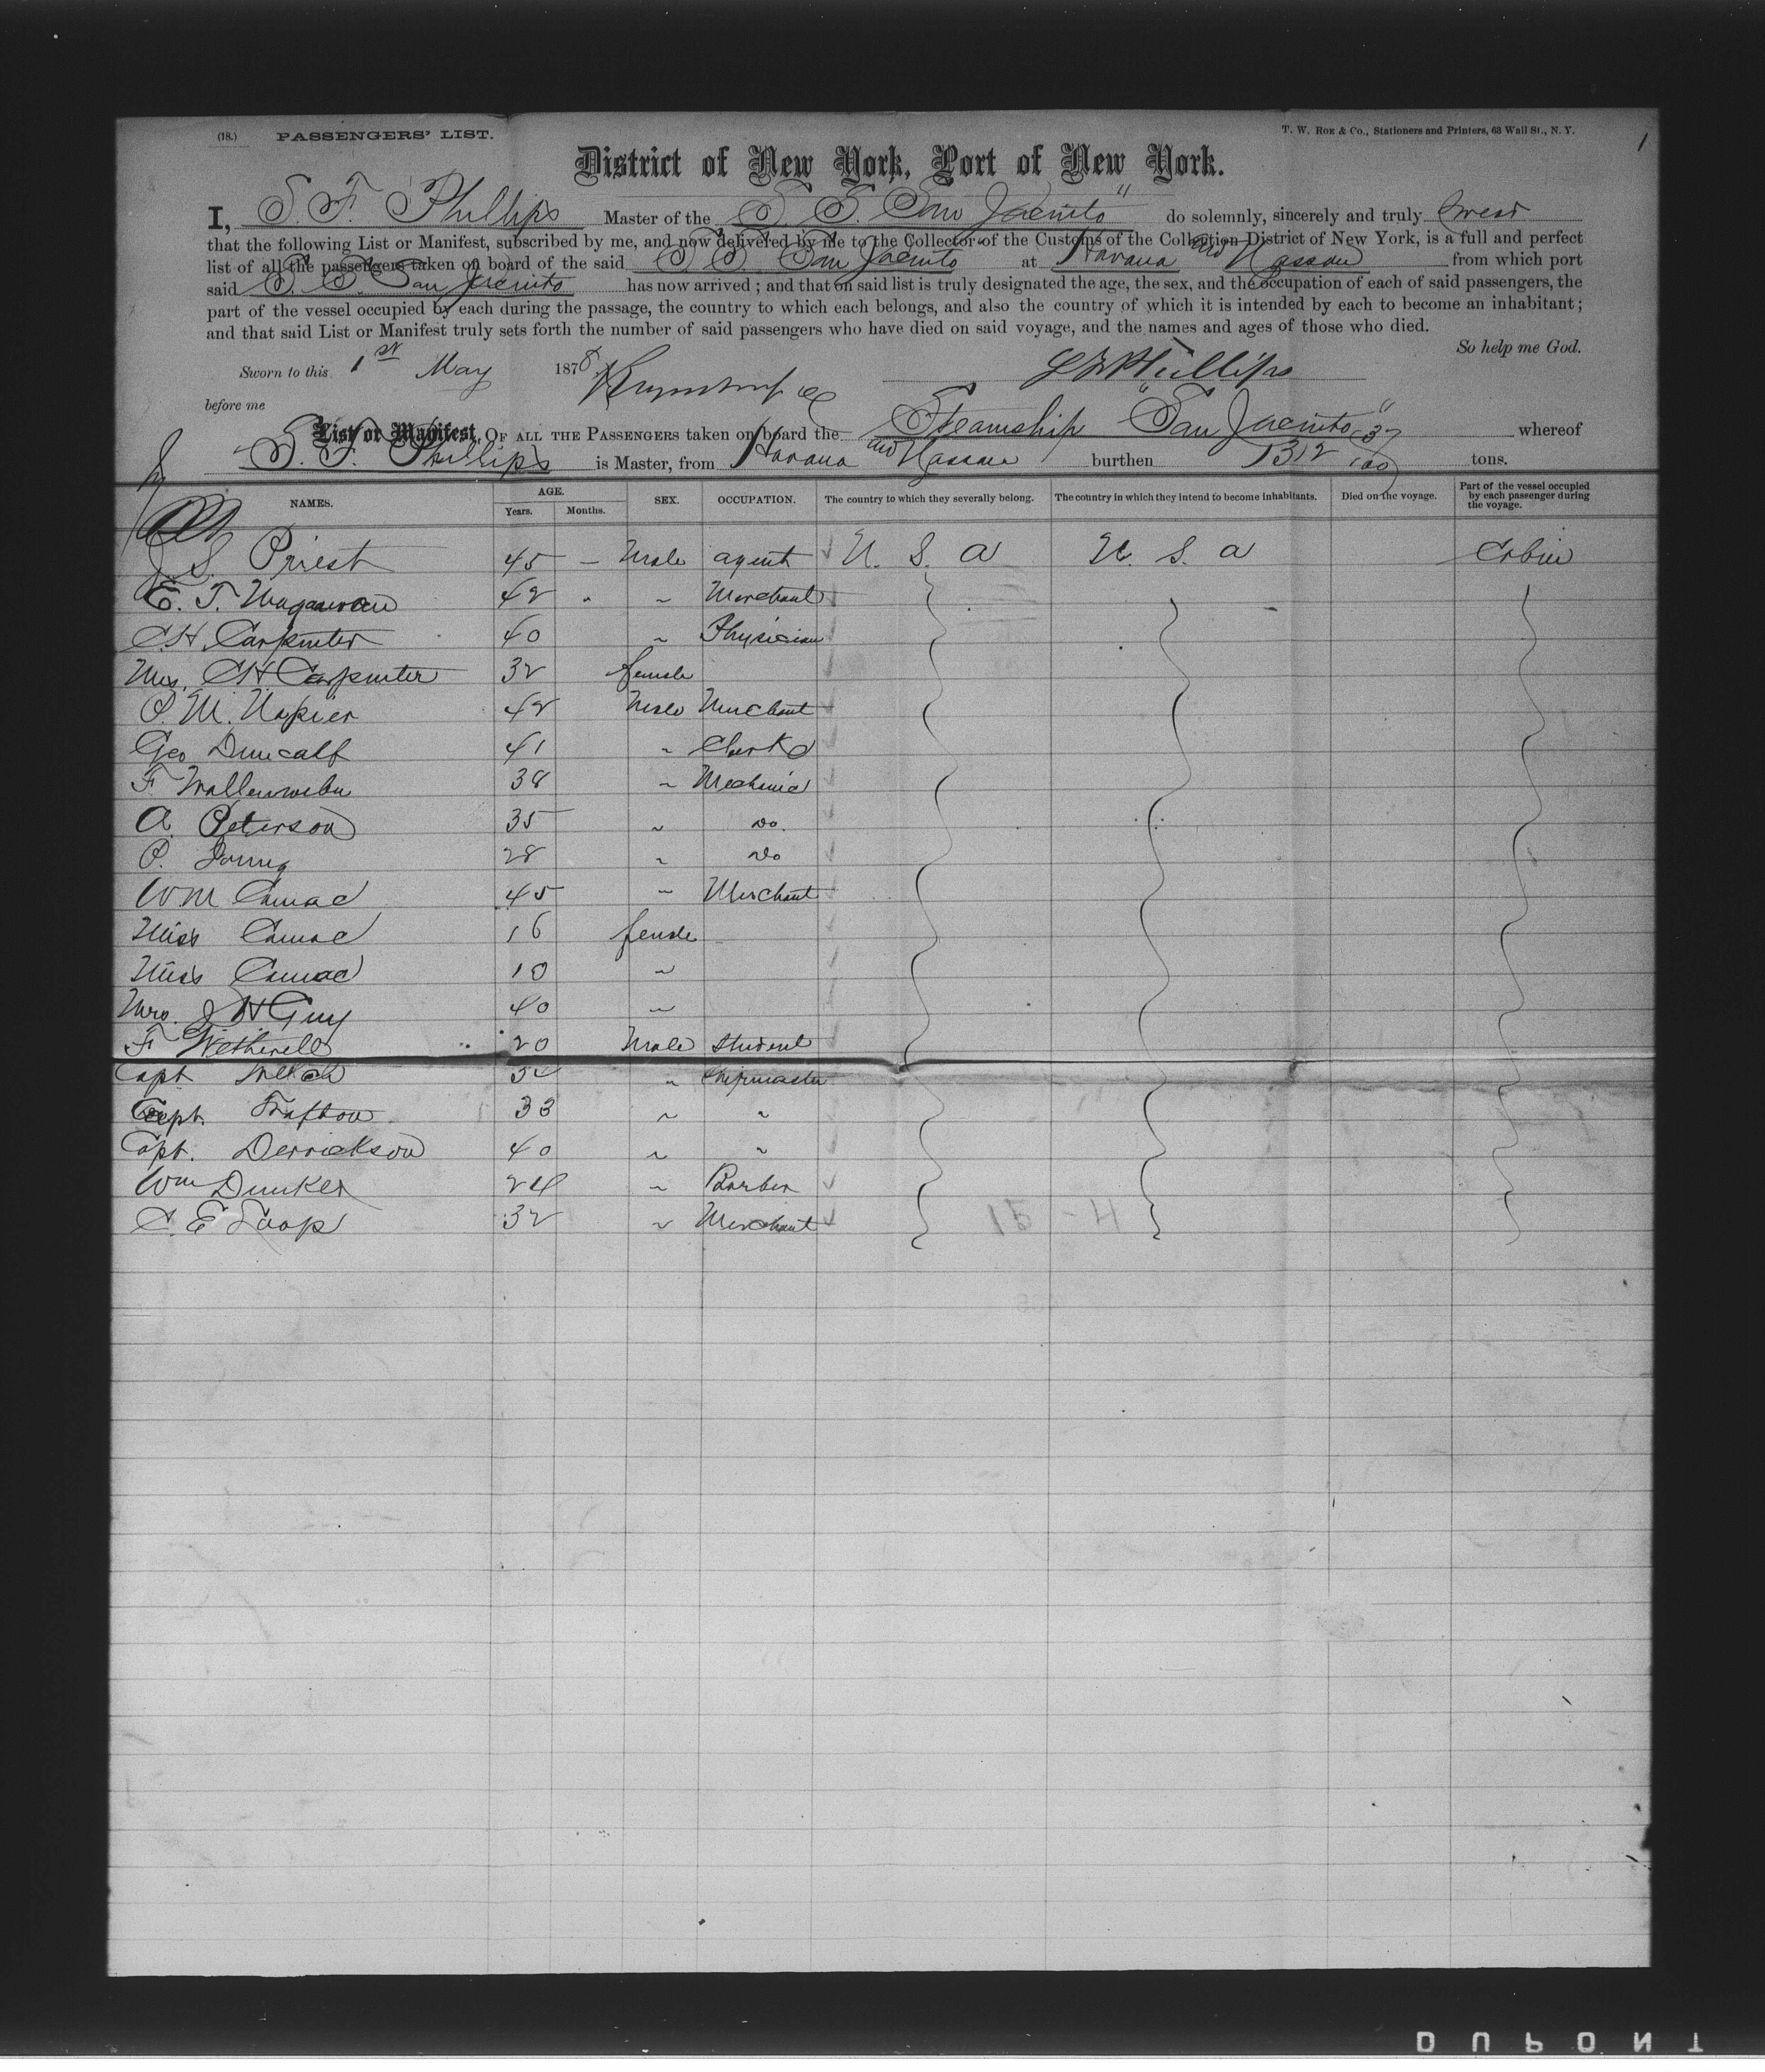 (18.) PASSENGERS' LIST. T. W. Roe & Co., Stationers and Printers, 63 Wall St., N. Y. 1
District of New York, Port of New York.
I, S. F. Phillips Master of the S. S. San Jacinto" do solemnly, sincerely and truly Swear
that the following List or Manifest, subscribed by me, and now delivered by me to the Collector of the Customs of the Collection District of New York, is a full and perfect
list of all the passengers taken on board of the said S. S. San Jacinto at Havana and Nassau from which port
said S. S. San Jacinto has now arrived ; and that on said list is truly designated the age, the sex, and the occupation of each of said passengers, the
part of the vessel occupied by each during the passage, the country to which each belongs, and also the country of which it is intended by each to become an inhabitant ;
and that said List or Manifest truly sets forth the number of said passengers who have died on said voyage, and the names and ages of those who died.
So help me God.
Sworn to this 1st May 1878 S F Phillips
before me
List or Manifest, OF ALL THE PASSENGERS taken on board the Steamship "San Jacinto" whereof
S. F. Phillips is Master, from Havana and Nassau burthen 1312 37/100 tons.
NAMES. AGE. Years. Months. SEX. OCCUPATION. The country to which they severally belong. The country in which they intend to become inhabitants. Died on the voyage. Part of the vessel occupied by each passenger during the voyage.
J S. Priest 45 – Male agent U. S. a U. S. a Cabin
E. T. 42 " " Merchant
C. H. Carpenter 40 " Physician
Mrs. C H Carpenter 32 female
P. M. Napier 42 Male Merchant
Geo Duncalf 41 " Clerk
F. 38 " Mechanic
A. Peterson 35 " Do.
P. Young 28 " Do
Wm Camac 45 " Merchant
Miss Camac 16 female
Miss Camac 10 "
Mrs. J H Guy 40 "
F Wetherell 20 Male Student
Capt. " Shipmaster
Capt. Trafton 33 " "
Capt. Derrickson 40 " "
Wm Dunker 24 " Barber
C. E Loop 32 " Merchant
DUPONT